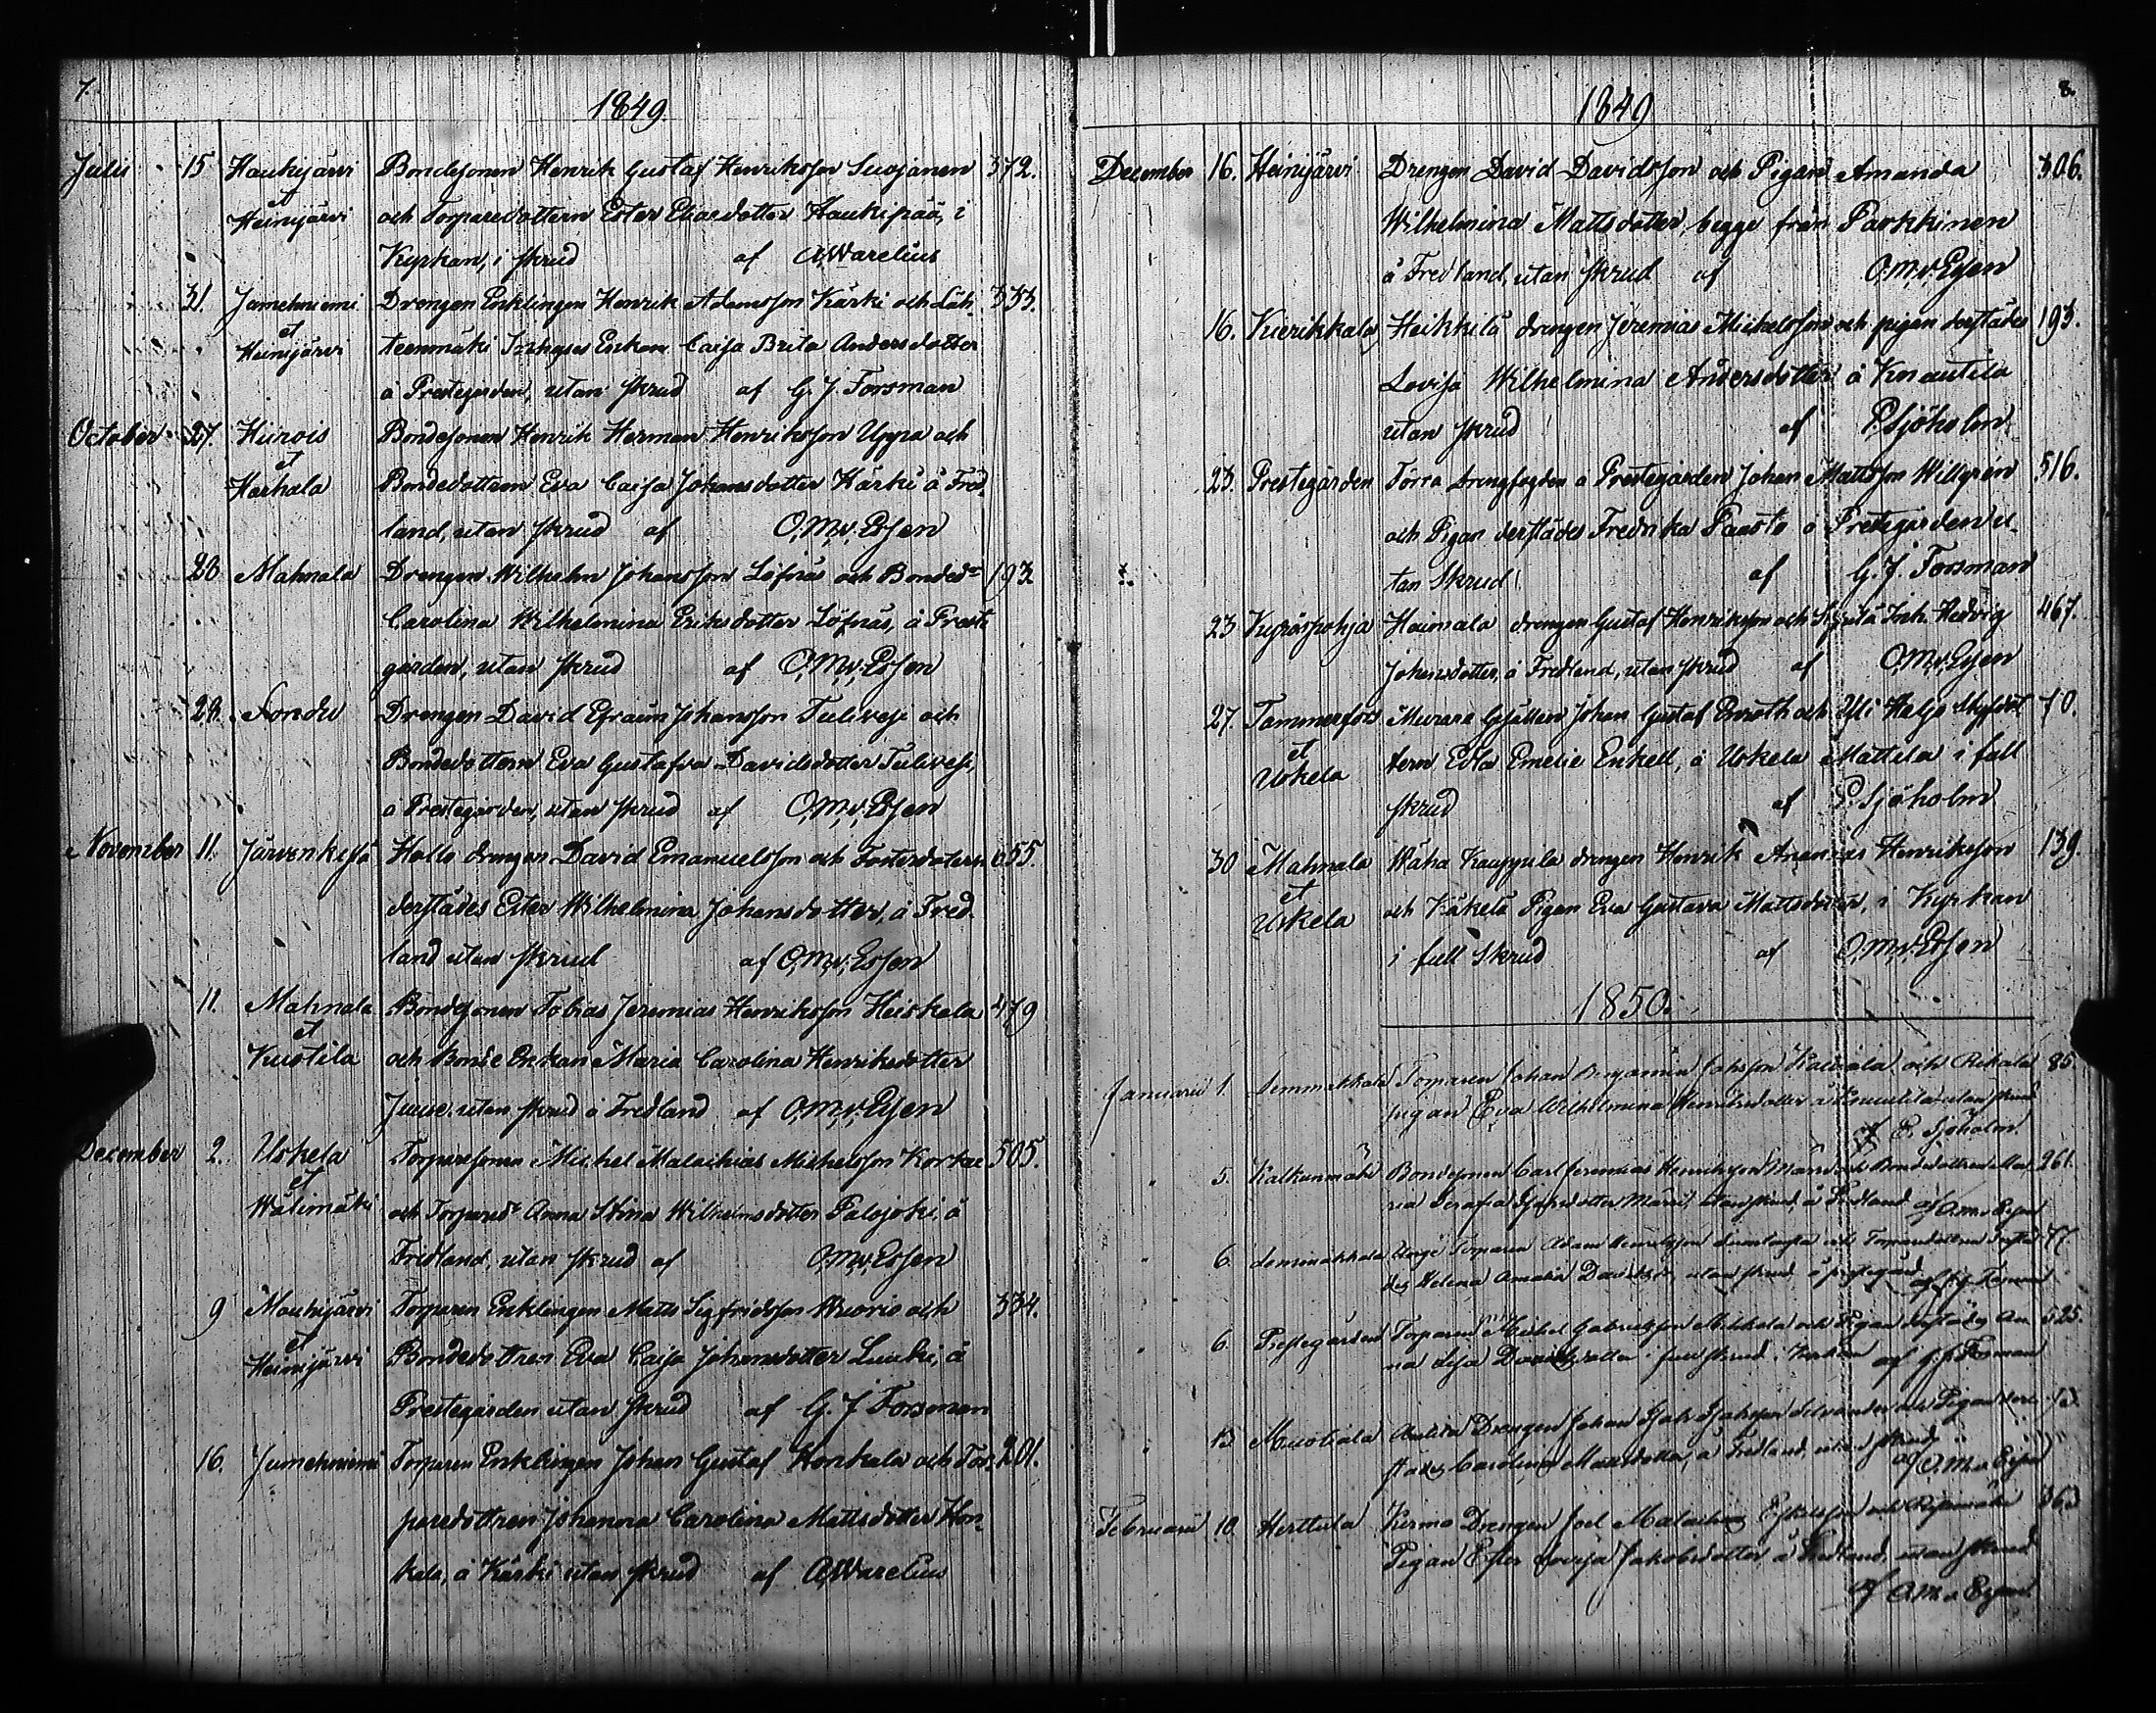 7.
1849
Julii 15 Haukijärvi Bondesonen Henrik Gustaf Henriksson Suojanen 372.
et
Heinijärvi och Torparedottern Ester Eliaedotter Haukipää, i
Kyrkan, i skrud af A. Warelius
31. Jumehniemi Drengen Enklingen Henrik Adamsson Kärki och Läh- 333.
et
Heinijärvi teenmäki Enkan Caisa Brita Andersdotter
å Prestegården, utan skrud af G. J. Forsman
October 27. Hirvois Bondesonen Henrik Herman Henriksson Uppa och
et
Harhala Bondedottren Eva Caisa Johansdotter Kärki å Fred-
land, utan skrud af O. M. v. Essen
28 Mahnala Drengen Wilhelm Johansson Löfnäs och Bonded:r 193
Carolina Wilhelmina Eriksdotter Löfnäs, å Preste
gården, utan skrud af O. M. v. Essen
28. Sondu Drengen David Efraim Johansson Tulivesi och
Bondedottern Eva Gustafva Davidsdotter Tulivesi,
å Prestegården, utan skrud af O. M. v. Essen
November 11. Järvenkylä Hollo drengen David Emanuelsson och Fosterdotern 655.
derstädes Ester Wilhelmina Johansdotter, å Fred-
land utan skrud af O. M. v. Essen
11. Mahnala Bondesonen Tobias Jeremias Henriksson Heiskala 479
et
Kuotila och Bonde Enkan Maria Carolina Henriksdotter
Juuse, utan skrud å Fredland af O. M. v. Essen
December 2. Uskela Torparesonen Michel Malachias Michelsson Korkee 505.
et
Wälimäki och Torpared:r Anna Stina Wilhelmsdotter Palojoki, å
Fredland, utan skrud af O. M. v. Essen
9 Mouhijärvi Torparen Enklingen Matts Sigfridsson Wuorio och 334.
et
Heinijärvi Bondedottren Eva Caisa Johansdotter Luuki, å
Prestegården utan skrud af G. J. Forsman
16. Jumehniemi Torparen Enklingen Johan Gustaf Honkala och Tor- 201.
paredottren Johanna Carolina Mattsdotter Hon-
kala, å Kärki utan skrud af A. Warelius
8.
1849
December 16. Heinijärvi Drengen David Davidsson och Pigan Amanda 306.
Wilhelmina Mattsdotter, begge från Parkkinen
å Fredland, utan skrud af O. M. v. Essen
16. Kierikkala Heikkilä drengen Jeremias Michelsson och pigan derstädes 193.
Lovisa Wilhelmina Andersdotter å Knautila
utan skrud af P. Sjöholm
23. Prestegården Förra drengfogden å Prestegården Johan Mattsson Willgrén 516.
och Pigan derstädes Fredrika Paasto å Prestegården u-
tan Skrud af G. J. Forsman
23 Kyröspohja Heimala drengen Gustaf Henriksson och Inh. Hedvig 467.
Johansdotter, å Fredland, utan skrud af O. M. v. Essen
27. Tammerfors Murare Gesällen Johan Gustaf Enroth och Styfdot 70.
et
Uskela tern Edla Emelie Enkell, å Uskela Mattila i full
skrud af P. Sjöholm
30 Mahnala Wäha Kauppila drengen Henrik Ananias Henriksson 139.
et
Uskela och Käkelä Pigan Eva Gustava Mattsdotter, i Kyrkan
i full Skrud af O. M. v. Essen
1850.
Januarii 1. Lemmakkala Torparen Johan Benjamin Johsson och Rekala 85.
pigan Eva Wilhelmina Henriksdotter å utan skrud
af P. Sjöholm
5. Kalkunmäki Bondesonen Carl Jeremias Henriksson Märri och Bondedottren Ma 261.
ria Serafia Märri, utan skrud, å Fredland af O. M. v. Essen
6. Lemmakkala Unge Torparen Adam och Torparedottren 77.
des Helena Amalia utan skrud å prestegård af G. J. Forsman
6. Prestegården Torparen Michel Gabrielsson Mikkola och Pigan derstädes An 525.
na Lisa Davidsdotter i full skrud. Kyrkan af G. J. Forsman
13 Muotiala Drengen Johan och Pigan der 13
städes Carolina Mattsdotter, å Fredland, utan skrud af O. M. v. Essen
Februarii 10. Herttula Kirmo Drengen Joel Malachias och 363
Pigan Ester Lovisa Jakobsdotter å Fredland, utan skrud
af O. M. v. Essen